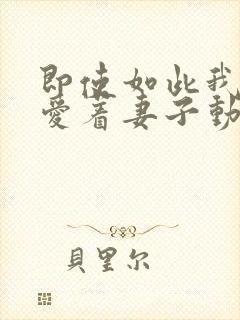 即使如此我
愛着妻子動
貝里尔